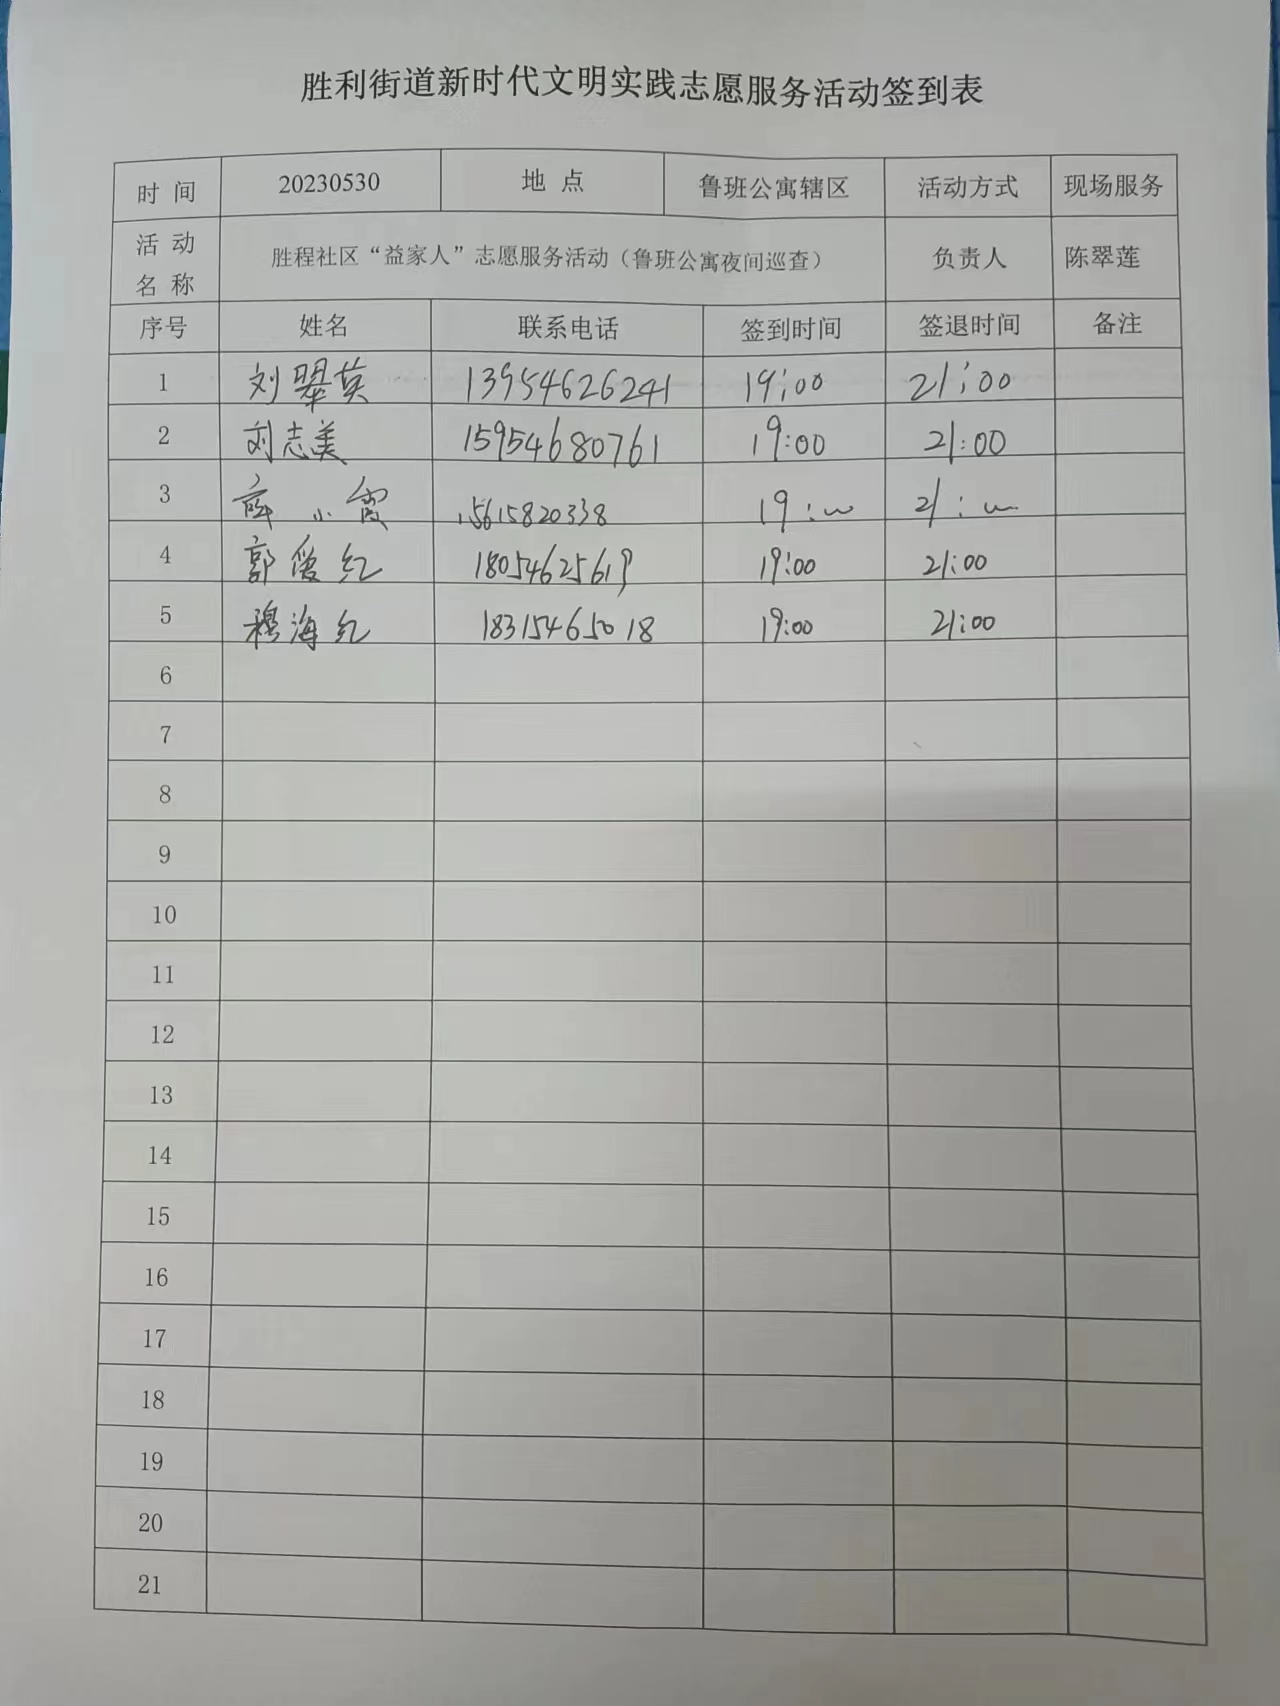 胜利街道新时代文明实践志愿服务活动签到表
时 间 20230530 地 点 鲁班公寓辖区 活动方式 现场服务
活 动 名 称 胜程社区“益家人”志愿服务活动（鲁班公寓夜间巡查） 负责人 陈翠莲
序号 姓名 联系电话 签到时间 签退时间 备注
1 刘翠英 13954626241 19:00 21:00
2 刘志美 15954680761 19:00 21:00
3 薛小霞 15615820338 19:00 21:00
4 郭俊红 18054625619 19:00 21:00
5 穆海红 18315465018 19:00 21:00
6
7
8
9
10
11
12
13
14
15
16
17
18
19
20
21